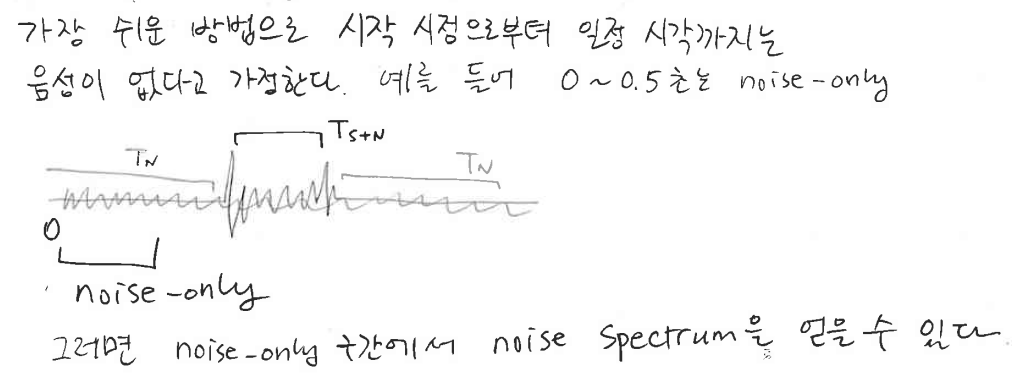 가장 쉬운 방법으로 시작 시점으로부터 일정 시각까지는
음성이 없다고 가정한다. 예를 들어 0~0.5초는 noise-only
T_S+N
T_N T_N
0
noise-only
그러면 noise-only 구간에서 noise spectrum을 얻을 수 있다